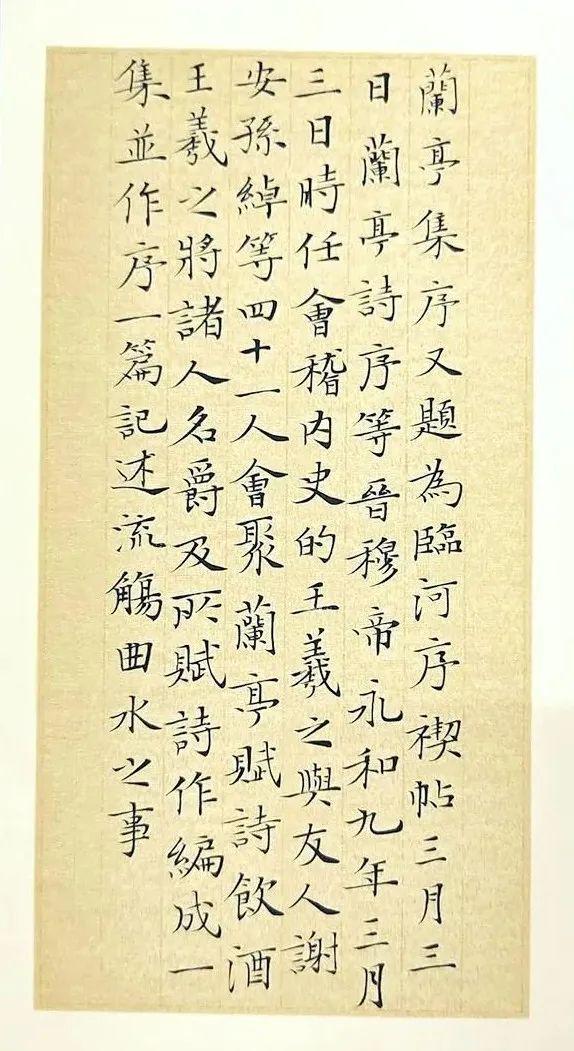 蘭亭集序又題為臨河序禊帖三月三
日蘭亭詩序等晉穆帝永和九年三月
三日時任會稽内史的王羲之與友人謝
安孫綽等四十一人會聚蘭亭賦詩飲酒
王羲之將諸人名爵及所賦詩作編成一
集並作序一篇記述流觴曲水之事